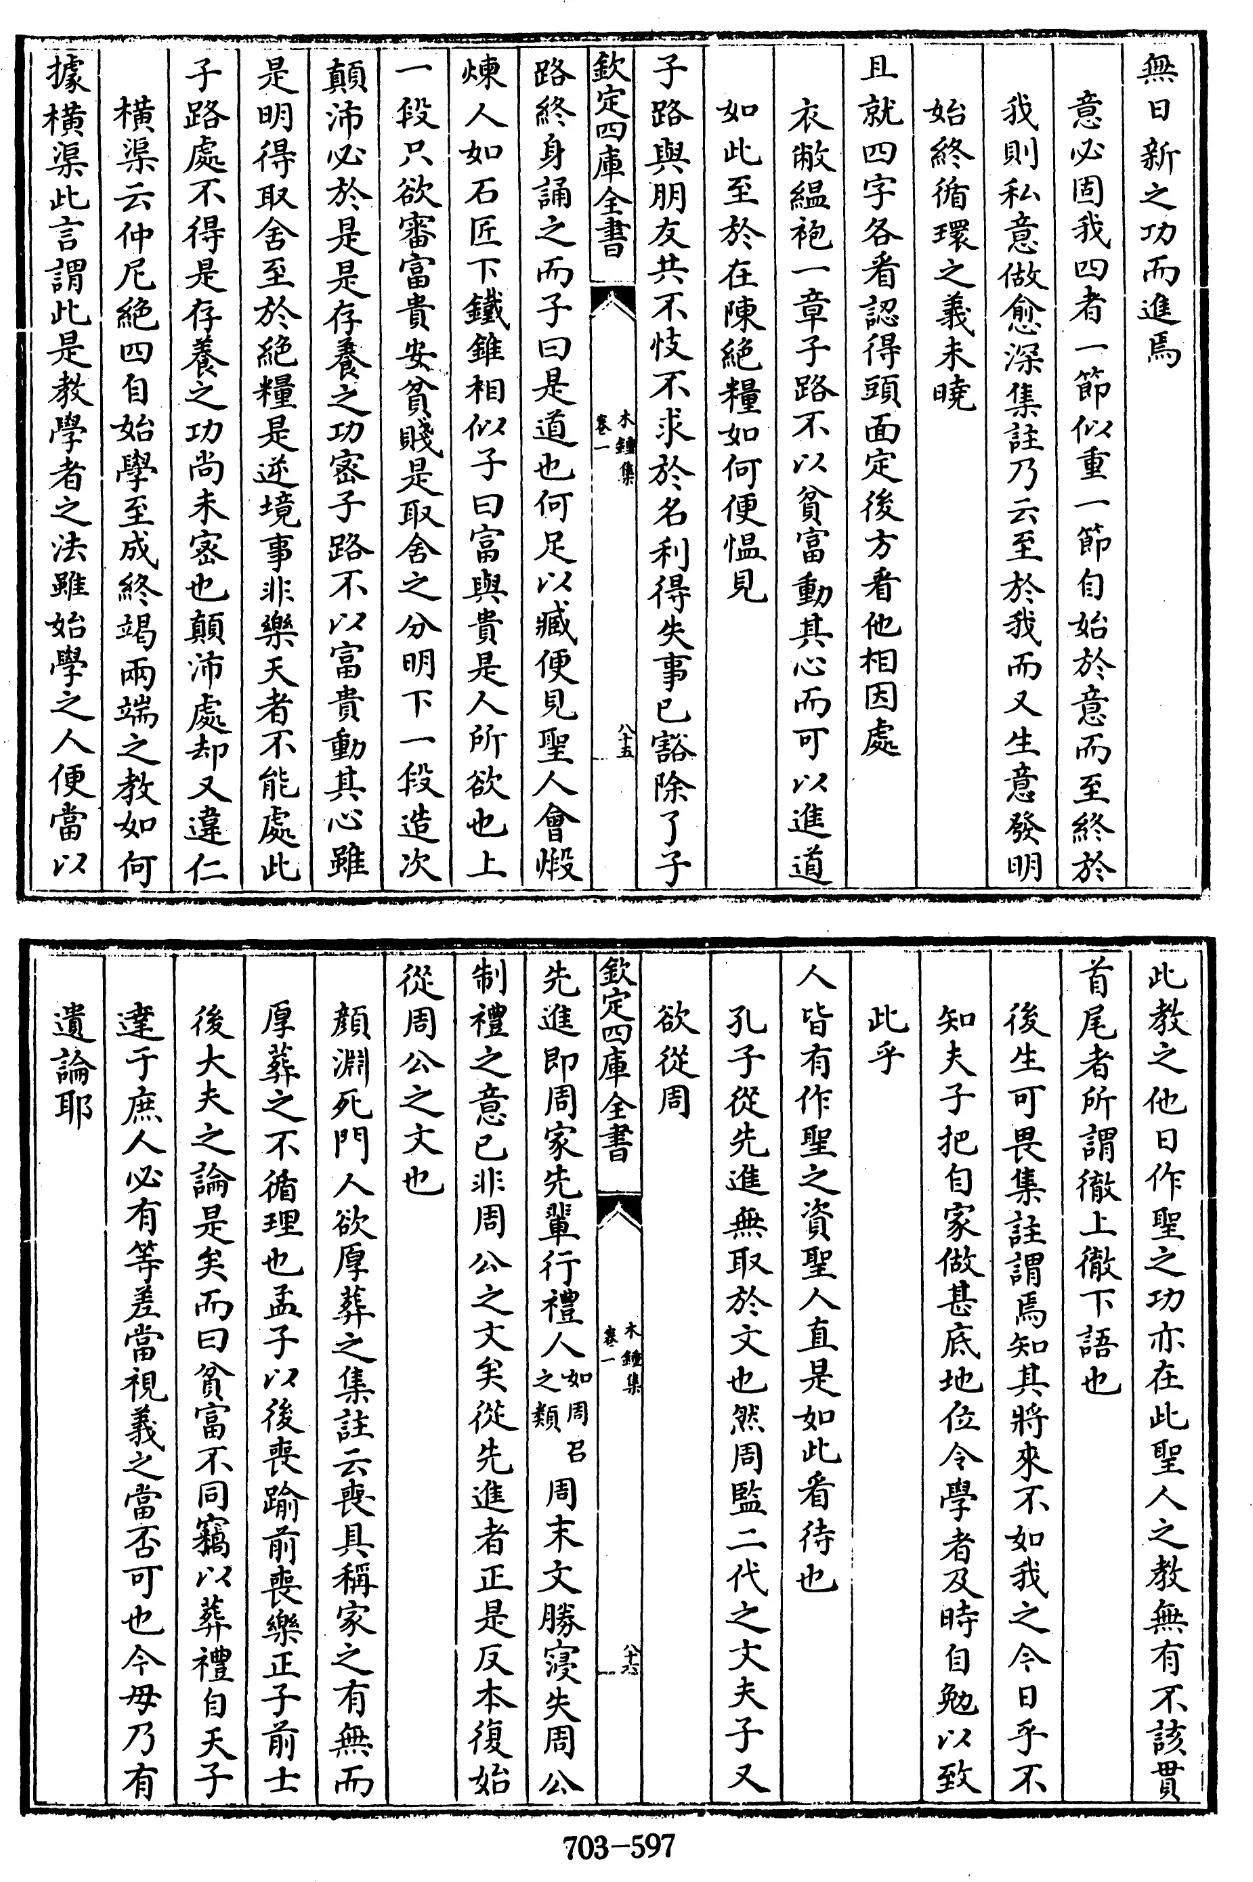 無日新之功而進焉
意必固我四者一節似重一節自始於意而至終於
我則私意做愈深集註乃云至於我而又生意發明
始終循環之義未曉
且就四字各看認得頭面定後方看他相因處
衣敝縕袍一章子路不以貧富動其心而可以進道
如此至於在陳絶糧如何便愠見
子路與朋友共不忮不求於名利得失事已豁除了子
欽定四庫全書
木鐘集
卷一
八十五
路終身誦之而子曰是道也何足以臧便見聖人會煅
煉人如石匠下鐵錐相似子曰富與貴是人所欲也上
一段只欲審富貴安貧賤是取舍之分明下一段造次
顛沛必於是是存養之功密子路不以富貴動其心雖
是明得取舍至於絶糧是逆境事非樂天者不能處此
子路處不得是存養之功尚未密也顛沛處却又違仁
横渠云仲尼絶四自始學至成終竭兩端之教如何
據横渠此言謂此是教學者之法雖始學之人便當以
此教之他日作聖之功亦在此聖人之教無有不該貫
首尾者所謂徹上徹下語也
後生可畏集註謂焉知其將來不如我之今日乎不
知夫子把自家做甚底地位令學者及時自勉以致
此乎
人皆有作聖之資聖人直是如此看待也
孔子從先進無取於文也然周監二代之文夫子又
欲從周
欽定四庫全書
木鐘集
卷一
八十六
先進即周家先輩行禮人如周召之類周末文勝寖失周公
制禮之意已非周公之文矣從先進者正是反本復始
從周公之文也
顔淵死門人欲厚葬之集註云喪具稱家之有無而
厚葬之不循理也孟子以後喪踰前喪樂正子前士
後大夫之論是矣而曰貧富不同竊以葬禮自天子
達于庶人必有等差當視義之當否可也今毋乃有
遺論耶
703-597